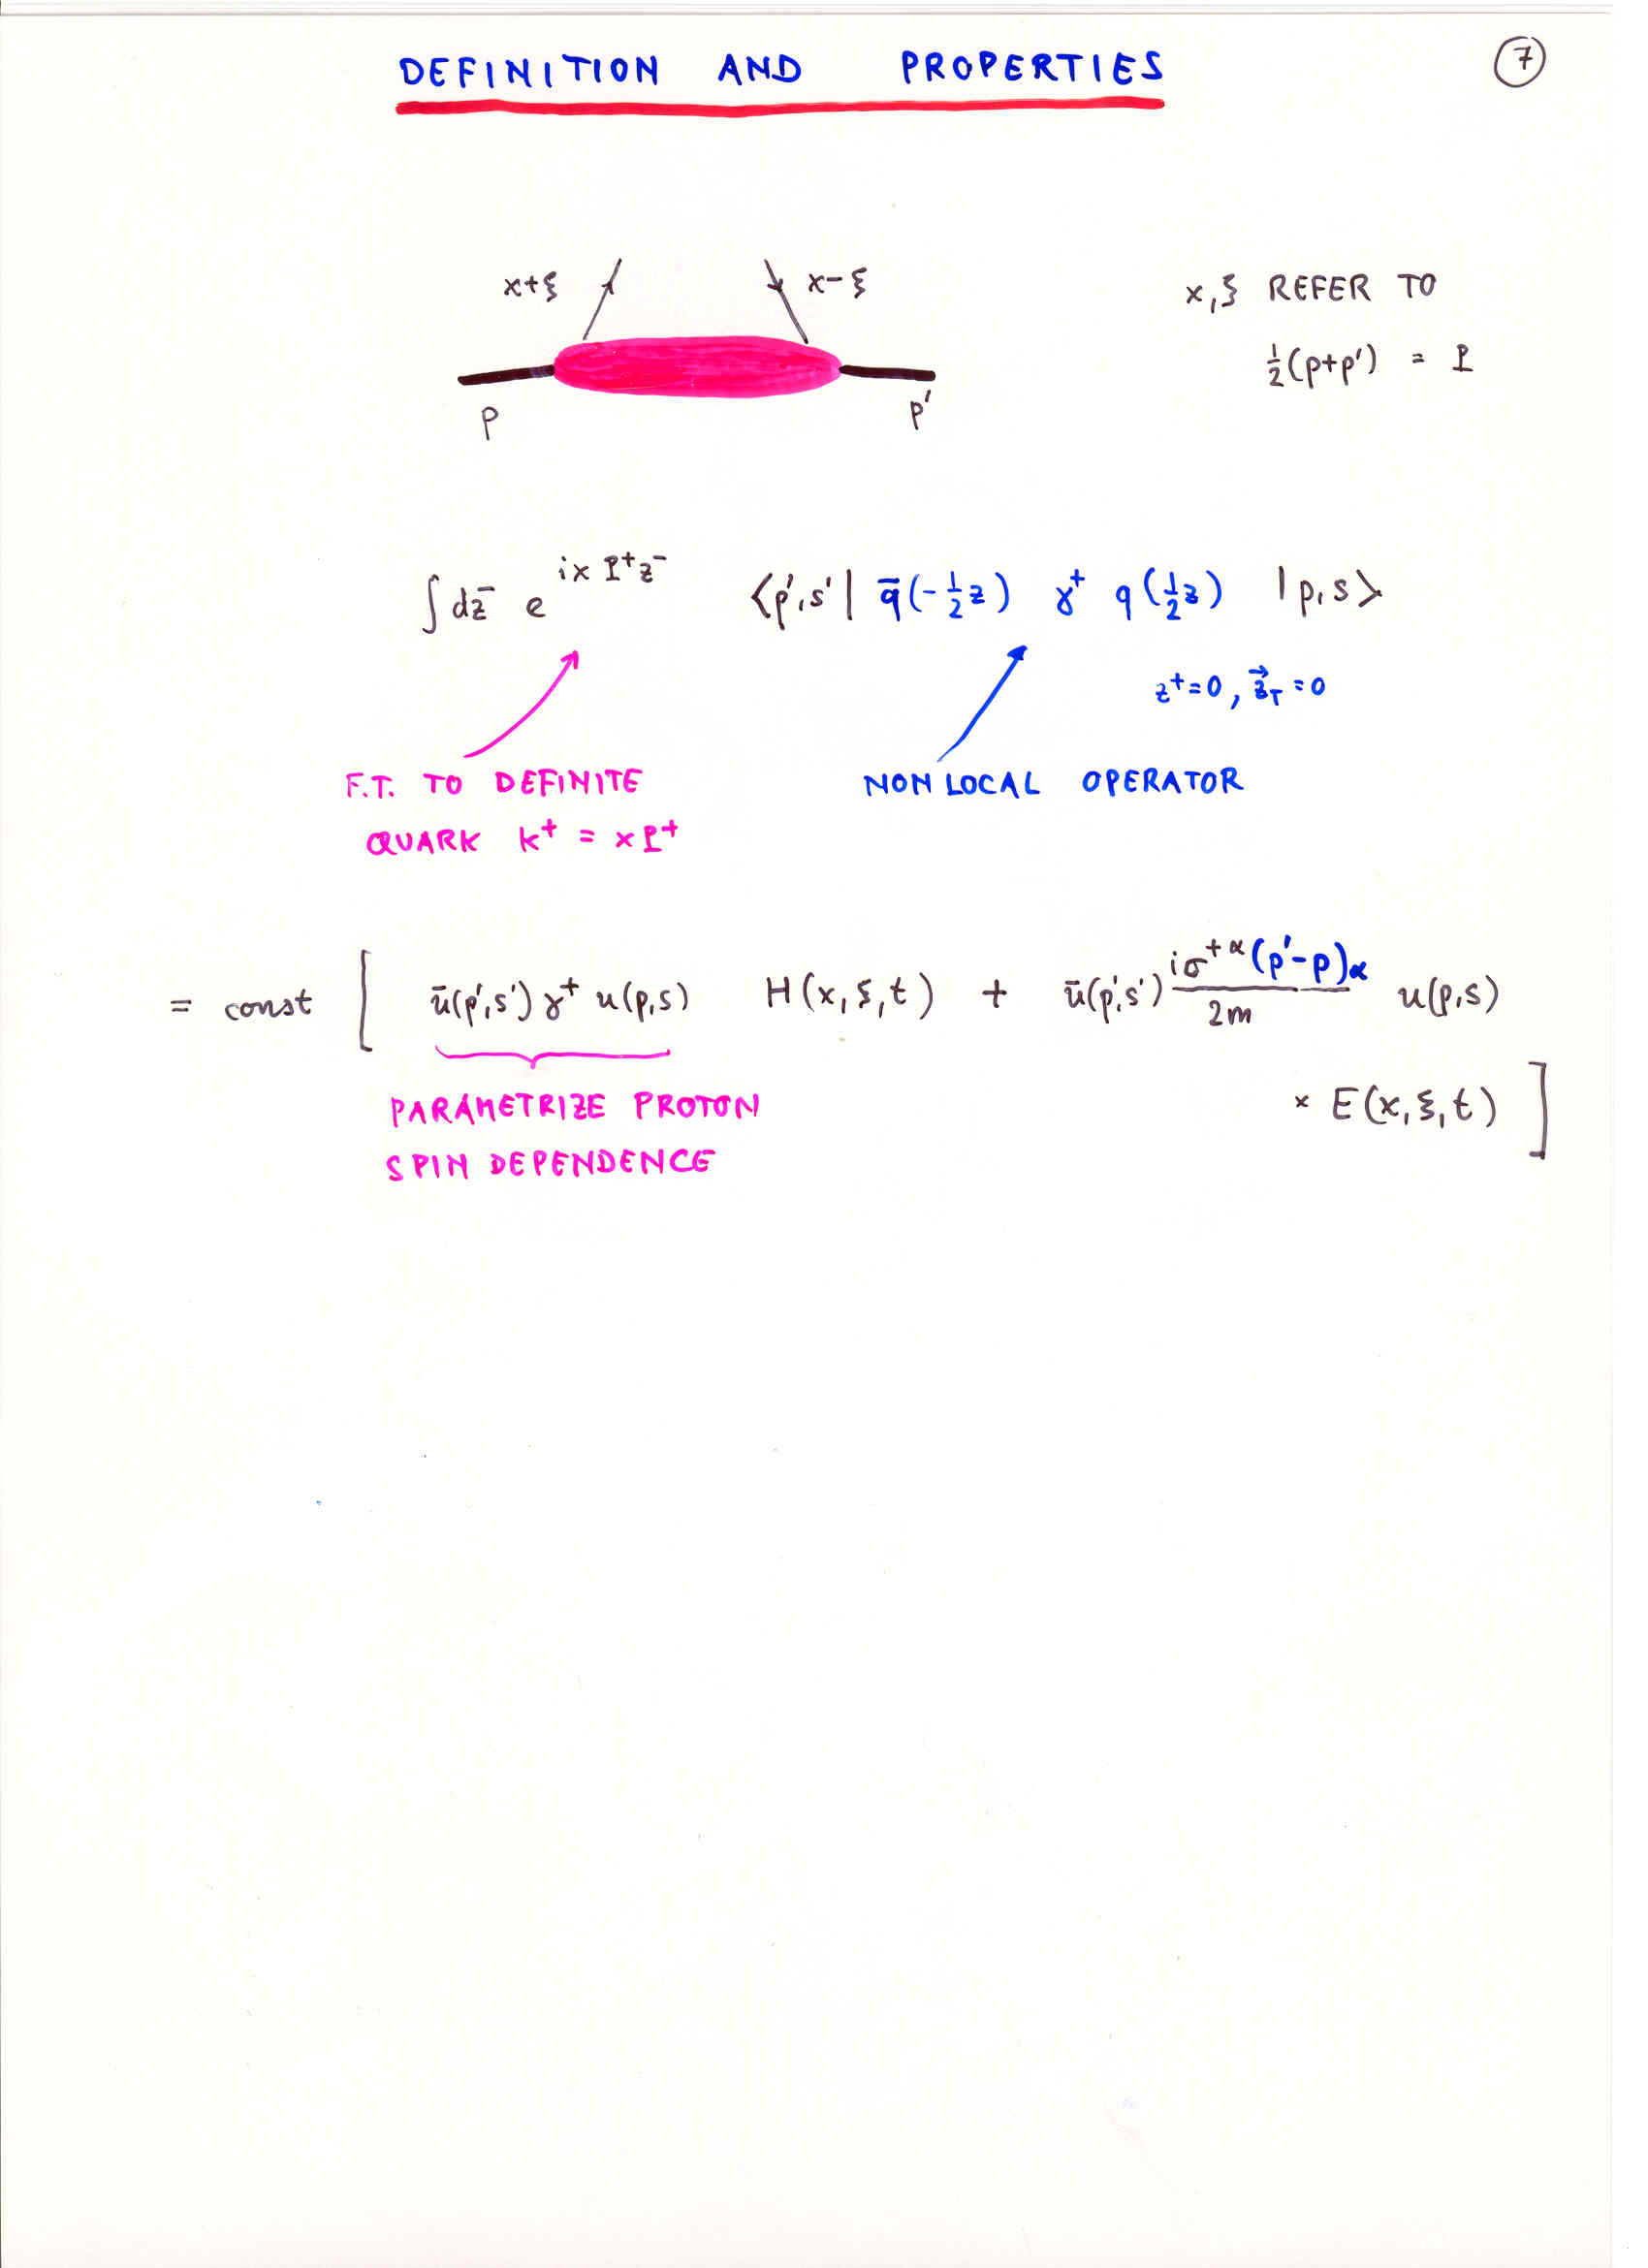 DEFINITION AND PROPERTIES
7
x+ξ
x-ξ
x,ξ REFER TO
½(p+p') = P
p
p'
∫dz⁻ e^{ix P⁺z⁻} ⟨p',s'| q̄(-½z) γ⁺ q(½z) |p,s⟩
z⁺=0, z⃗_T=0
F.T. TO DEFINITE
QUARK k⁺ = xP⁺
NON LOCAL OPERATOR
= const [ ū(p',s') γ⁺ u(p,s) H(x,ξ,t) + ū(p',s') iσ^{+α}(p'-p)_α / 2m u(p,s)
× E(x,ξ,t) ]
PARAMETRIZE PROTON
SPIN DEPENDENCE